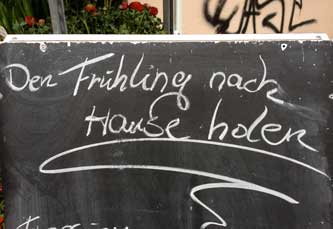 Den Frühling nach
Hause holen